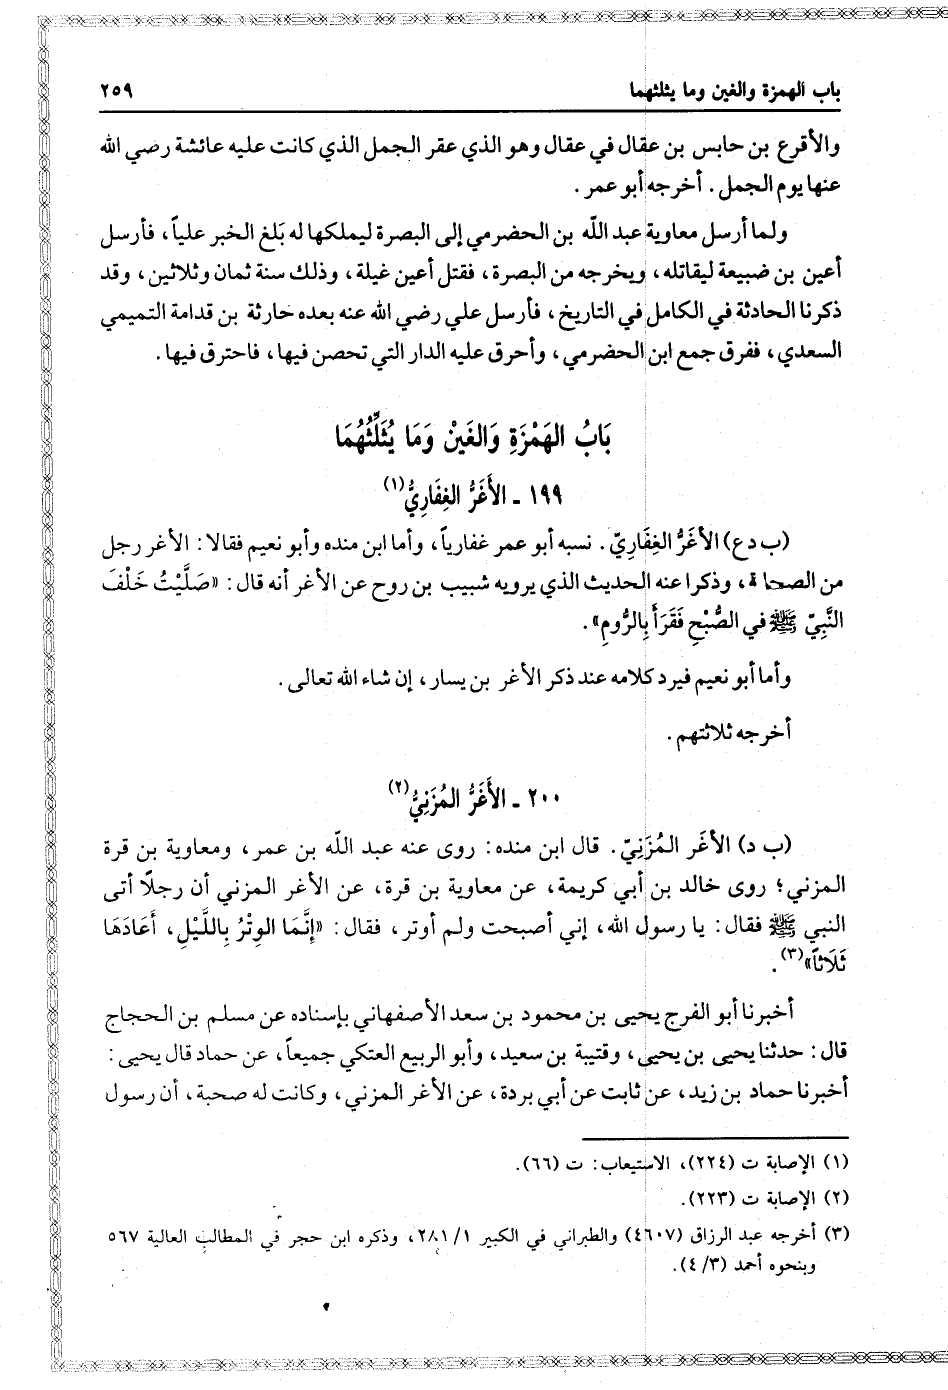 باب الهمزة والغين وما يثلثهما ٢٥٩
والأقرع بن حابس بن عقال في عقال وهو الذي عقر الجمل الذي كانت عليه عائشة رضي الله
عنها يوم الجمل. أخرجه أبو عمر.
ولما أرسل معاوية عبد اللّه بن الحضرمي إلى البصرة ليملكها له بَلغ الخبر علياً، فأرسل
أعين بن ضبيعة ليقاتله، ويخرجه من البصرة، فقتل أعين غيلة، وذلك سنة ثمان وثلاثين، وقد
ذكرنا الحادثة في الكامل في التاريخ، فأرسل علي رضي الله عنه بعده حارثة بن قدامة التميمي
السعدي، ففرق جمع ابن الحضرمي، وأحرق عليه الدار التي تحصن فيها، فاحترق فيها.
بَابُ الهَمْزَةِ وَالغَيْنِ وَمَا يُثَلِّثُهُمَا
١٩٩ ـ الأَغَرُّ الغِفَارِيُّ(١)
(ب د ع) الأغَرُّ الغِفَارِيّ. نسبه أبو عمر غفارياً، وأما ابن منده وأبو نعيم فقالا: الأغر رجل
من الصحا ة، وذكرا عنه الحديث الذي يرويه شبيب بن روح عن الأغر أنه قال: «صَلَّيْتُ خَلْفَ
النَّبِيّ ﷺ في الصُّبْحِ فَقَرَأَ بِالرُّومِ».
وأما أبو نعيم فيرد كلامه عند ذكر الأغر بن يسار، إن شاء الله تعالى.
أخرجه ثلاثتهم.
٢٠٠ ـ الأَغَرُّ المُزَنِيُّ(٢)
(ب د) الأغَر المُزَنِيّ. قال ابن منده: روى عنه عبد اللّه بن عمر، ومعاوية بن قرة
المزني؛ روى خالد بن أبي كريمة، عن معاوية بن قرة، عن الأغر المزني أن رجلاً أتى
النبي ﷺ فقال: يا رسول الله، إني أصبحت ولم أوتر، فقال: «إِنَّمَا الوِتْرُ بِاللَّيْلِ، أَعَادَهَا
ثَلَاثاً»(٣).
أخبرنا أبو الفرج يحيى بن محمود بن سعد الأصفهاني بإسناده عن مسلم بن الحجاج
قال: حدثنا يحيى بن يحيى، وقتيبة بن سعيد، وأبو الربيع العتكي جميعاً، عن حماد قال يحيى:
أخبرنا حماد بن زيد، عن ثابت عن أبي بردة، عن الأغر المزني، وكانت له صحبة، أن رسول
(١) الإصابة ت (٢٢٤)، الاستيعاب: ت (٦٦).
(٢) الإصابة ت (٢٢٣).
(٣) أخرجه عبد الرزاق (٤٦٠٧) والطبراني في الكبير ٢٨١/١، وذكره ابن حجر في المطالب العالية ٥٦٧
وبنحوه أحمد (٤/٣).